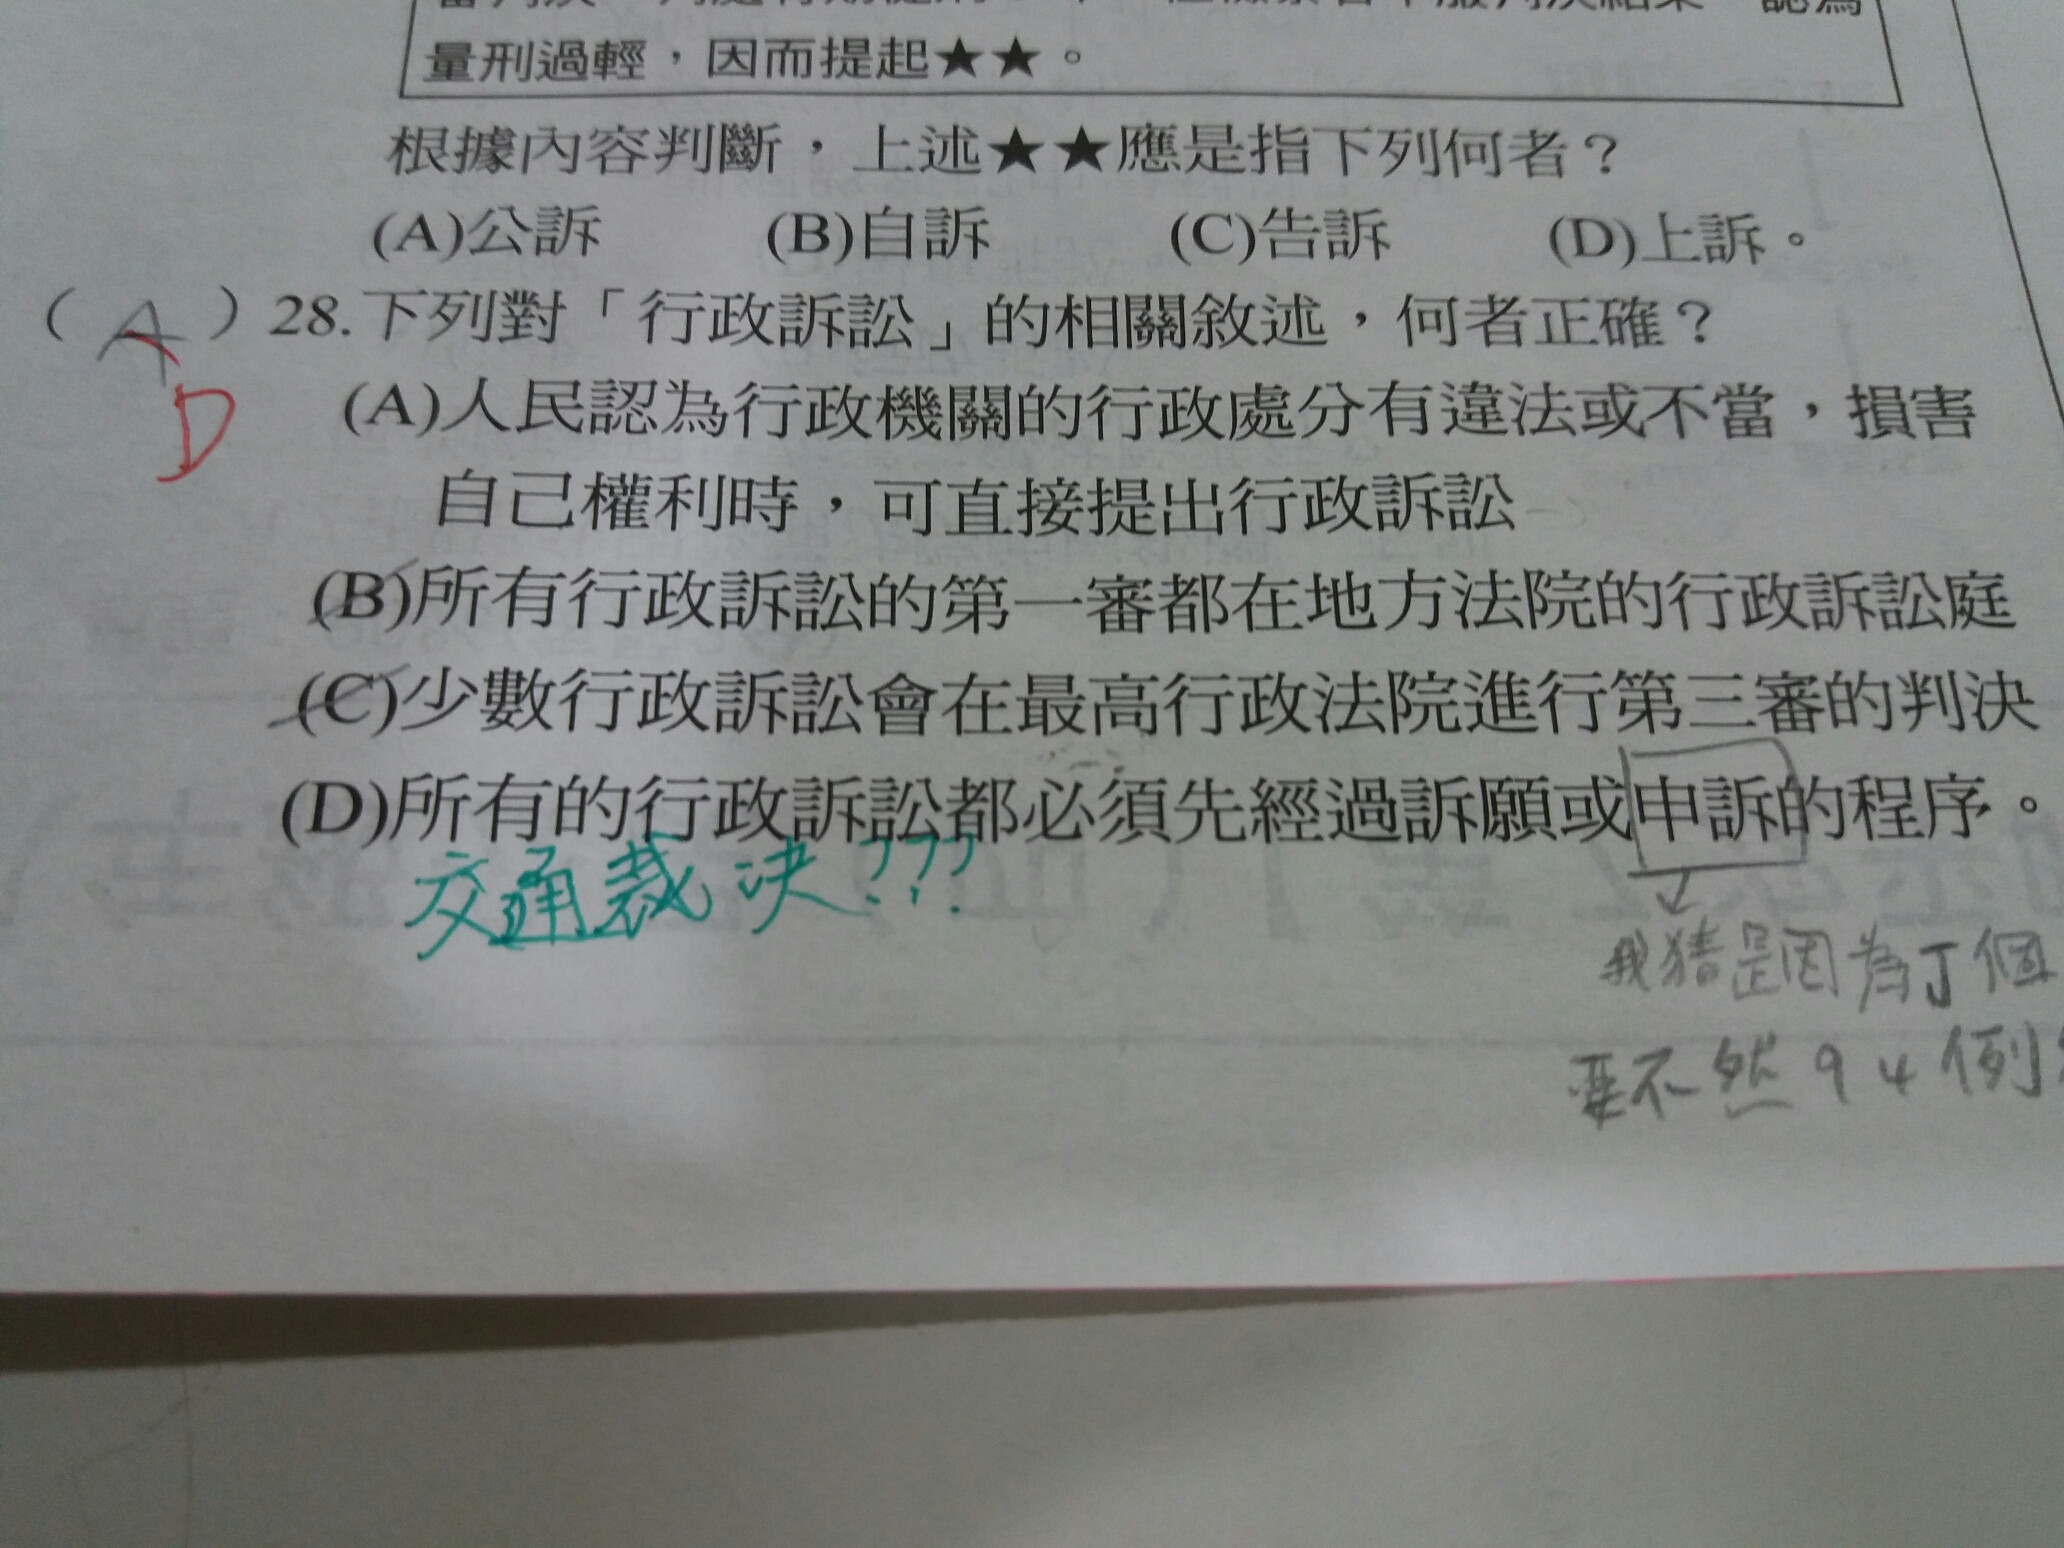 量刑過輕，因而提起★★。
根據內容判斷，上述★★應是指下列何者？
(A)公訴 (B)自訴 (C)告訴 (D)上訴。
（A）28.下列對「行政訴訟」的相關敘述，何者正確？
D
(A)人民認為行政機關的行政處分有違法或不當，損害
自己權利時，可直接提出行政訴訟
(B)所有行政訴訟的第一審都在地方法院的行政訴訟庭
(C)少數行政訴訟會在最高行政法院進行第三審的判決
(D)所有的行政訴訟都必須先經過訴願或申訴的程序。
交通裁決???
我猜是因為丁個
要不然94例